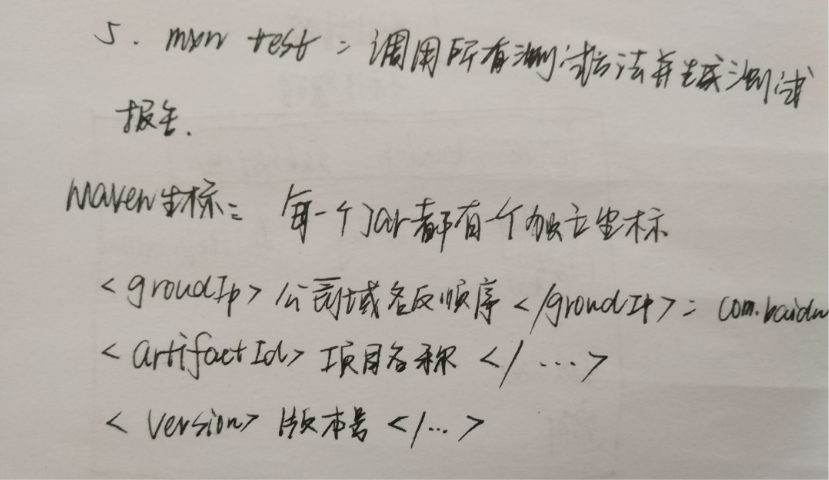 5. mvn test：调用所有测试方法并生成测试
报告.
Maven坐标： 每一个jar都有一个独立坐标
<groudIp> 公司域名反顺序 </groudIp>： com.baidu
<artifactId> 项目名称 </ ...>
<version> 版本号 </...>